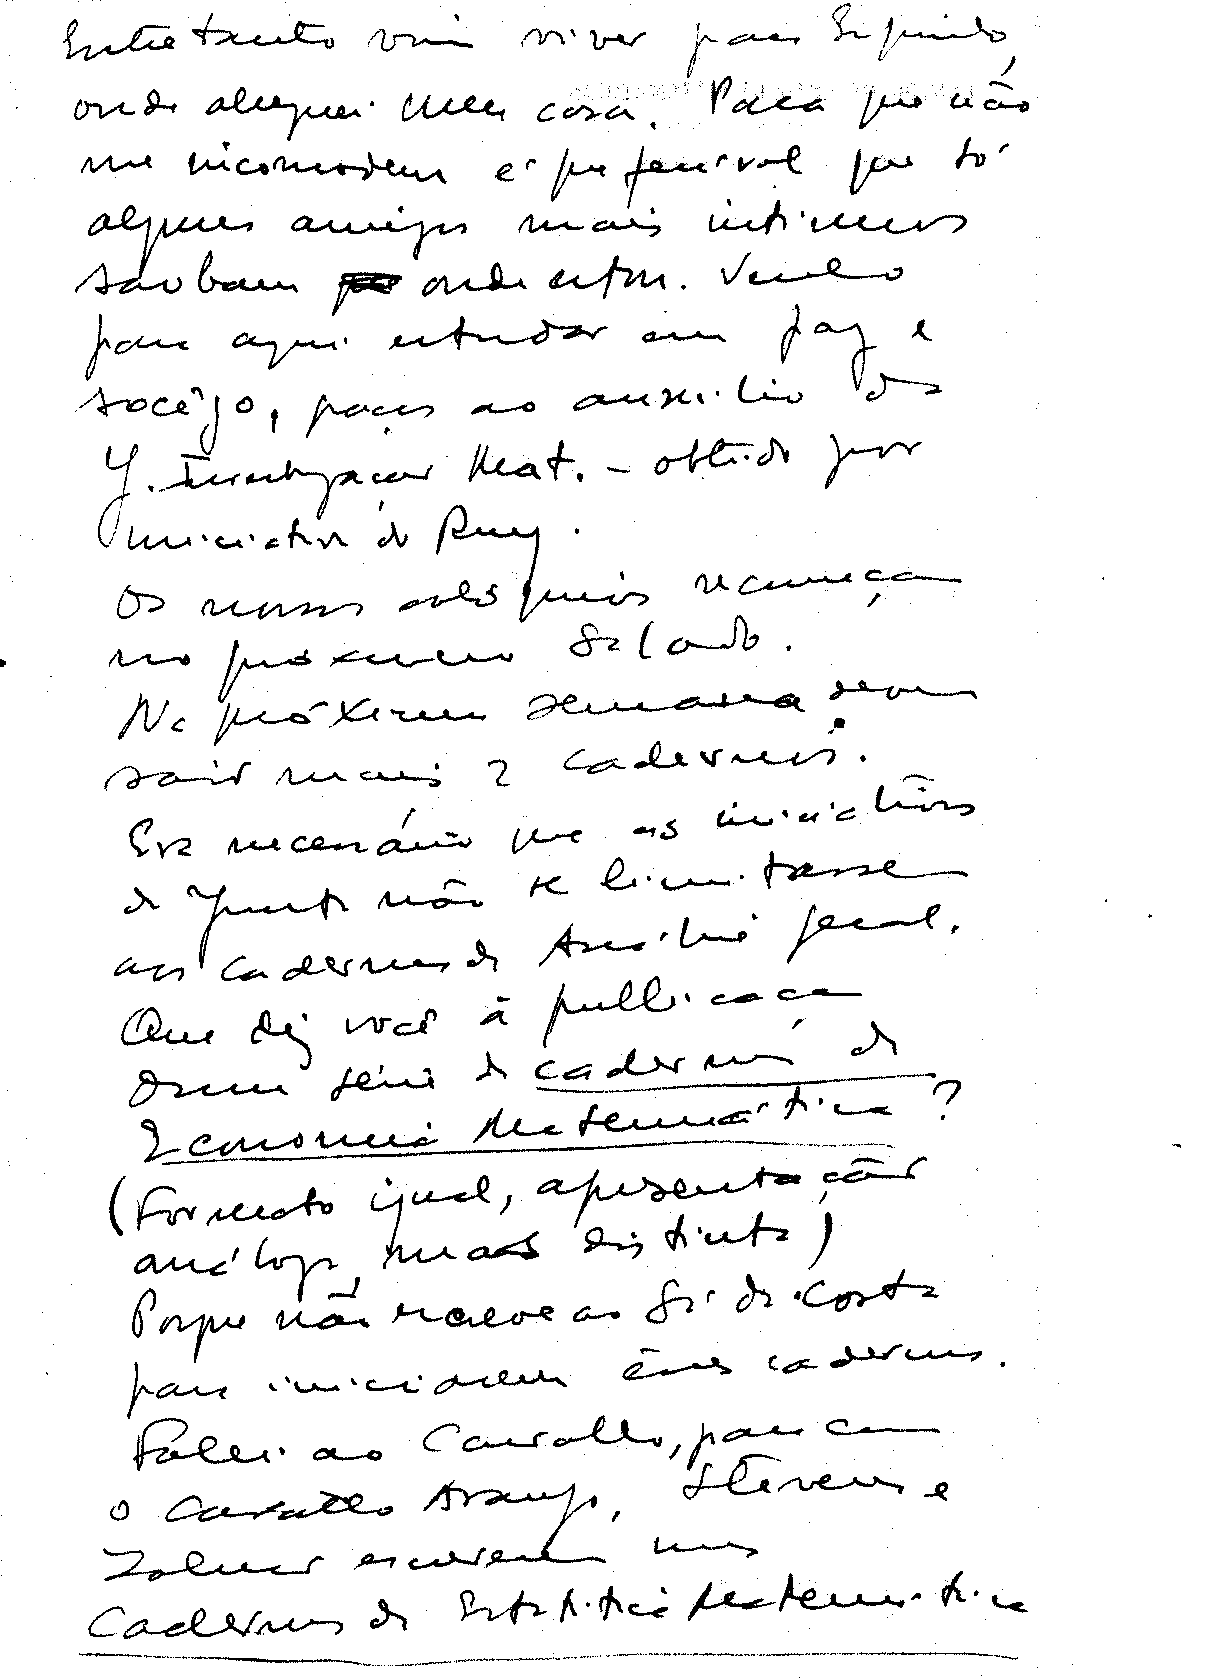 Entretanto vim viver para Espinho,
onde aluguei uma casa. Para que não
me incomodem é preferível que só
alguns amigos mais íntimos
saibam onde estou. Venho
para aqui estudar em paz e
socêgo, graças ao auxílio da
J. Investigação Mat. – obtido por
iniciativa do Ruy.
Os nossos colóquios recomeçam
no próximo Sábado.
Na próxima semana devem
sair mais 2 cadernos.
Era necessário que as iniciativas
da Junta não se limitassem
aos cadernos de Análise geral.
Que diz você à publicação
duma série de cadernos de
Economia Matemática?
(Formato igual, apresentação
análoga, mas distinta)
Porque não escreve ao Sá da Costa
para iniciarem êsses cadernos.
Falei ao Carvalho, para com
o Carvallo Araujo, Stevens e
Zaluar escreverem uns
Cadernos de Estatística Matemática